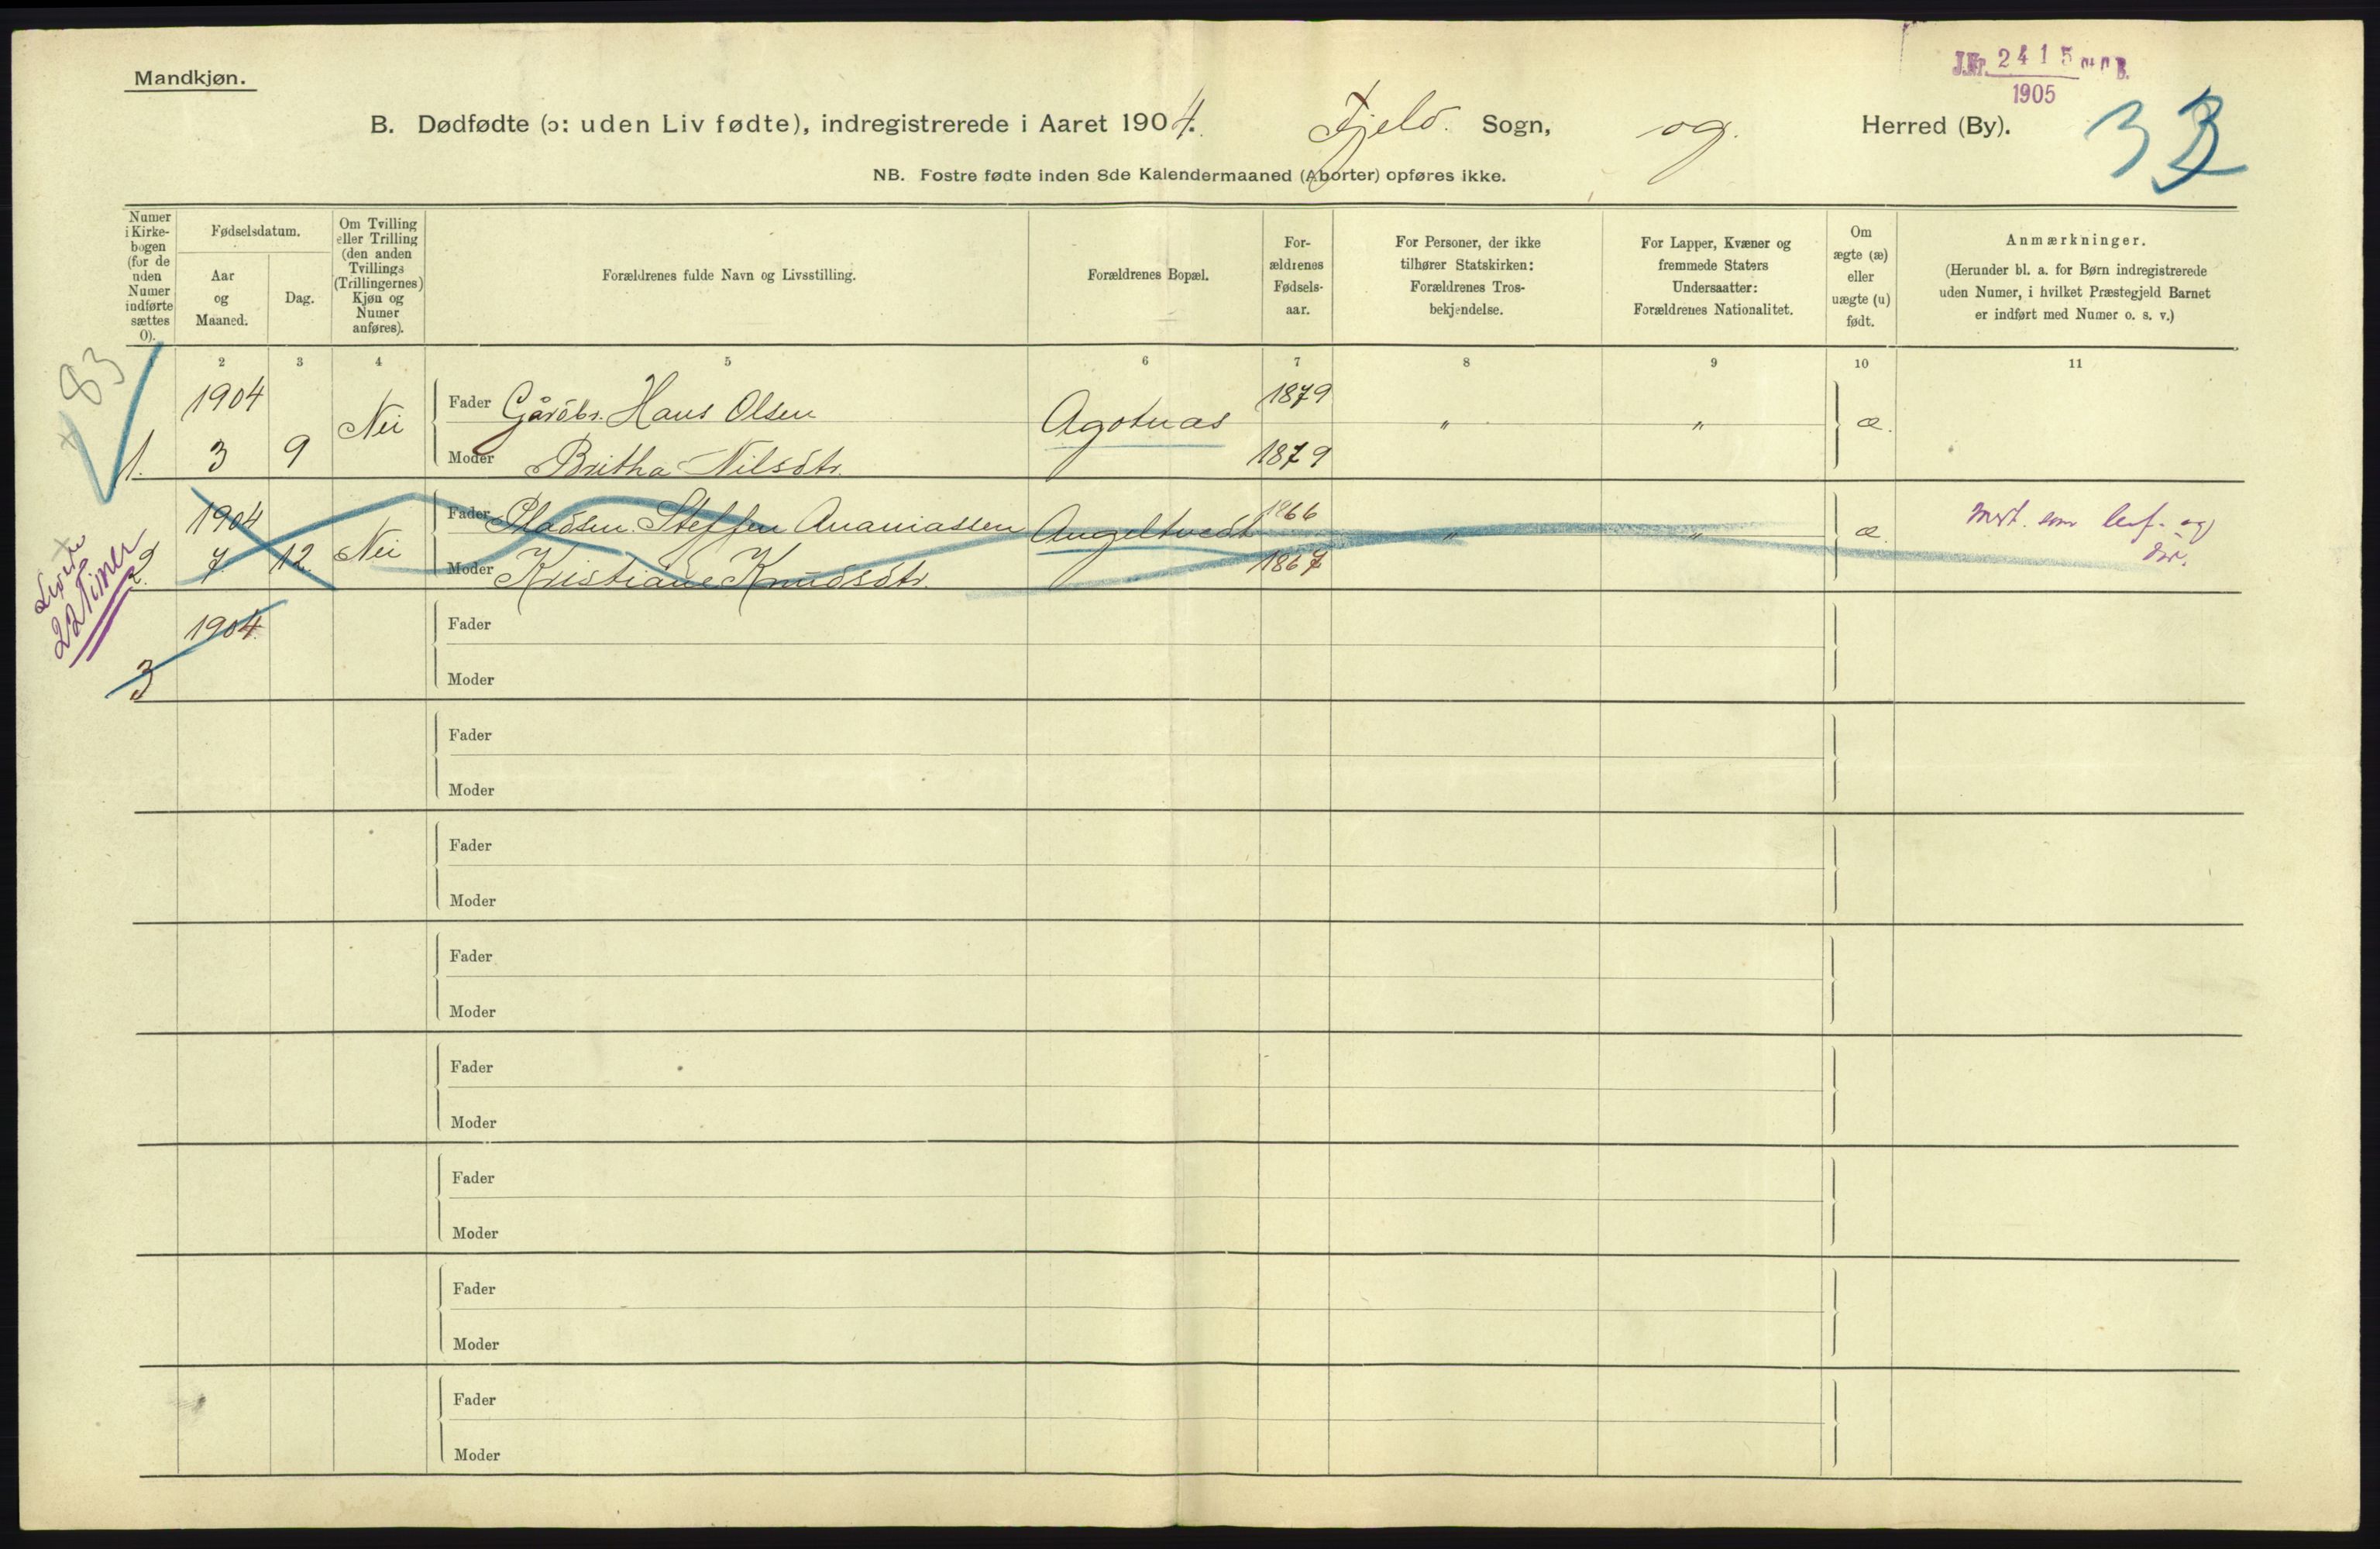 Mandkjøn.
J.Nr. 2415
1905
B. Dødfødte (ɔ: uden Liv fødte), indregistrerede i Aaret 1904. Fjeld. Sogn, og. Herred (By).
NB. Fostre fødte inden 8de Kalendermaaned (Aborter) opføres ikke.
Numer
i Kirke-
bogen
(for de
uden
Numer
indførte
sættes
0).
Fødselsdatum.
Aar
og
Maaned.
Dag.
Om Tvilling
eller Trilling
(den anden
Tvillings
(Trillingernes)
Kjøn og
Numer
anføres).
Forældrenes fulde Navn og Livsstilling.
Forældrenes Bopæl.
For-
ældrenes
Fødsels-
aar.
For Personer, der ikke
tilhører Statskirken:
Forældrenes Tros-
bekjendelse.
For Lapper, Kvæner og
fremmede Staters
Undersaatter:
Forældrenes Nationalitet.
Om
ægte (æ)
eller
uægte (u)
født.
Anmærkninger.
(Herunder bl. a. for Børn indregistrerede
uden Numer, i hvilket Præstegjeld Barnet
er indført med Numer o. s. v.)
1 2 3 4 5 6 7 8 9 10 11
83
1904 Nei Fader Gårdbr. Hans Olsen Agotnæs 1879 " " æ.
1. 3 9 Moder Britha Nilsdtr. 1879
1904 Nei Fader Pladsm. Steffen Ananiassen Angeltvedt 1866 " " æ. som levf. og
2. 7 12 Moder Kristiane Knudsdtr. 1867 død.
Levede
22 Timer
1904. Fader
3 Moder
Fader
Moder
Fader
Moder
Fader
Moder
Fader
Moder
Fader
Moder
Fader
Moder
Fader
Moder